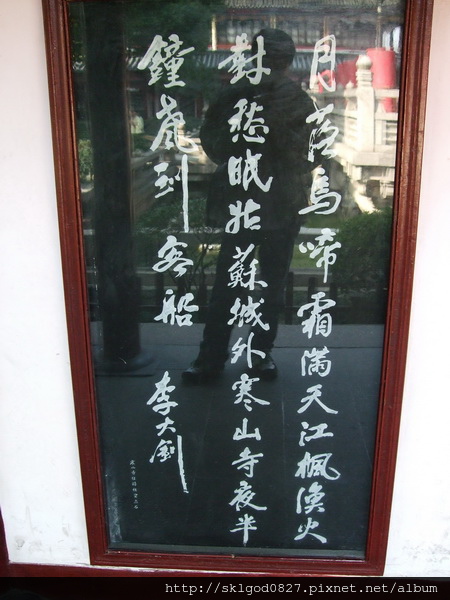 月落烏啼霜滿天江楓漁火
對愁眠姑蘇城外寒山寺夜半
鐘聲到客船
李大釗
http://sklgod0827.pixnet.net/album